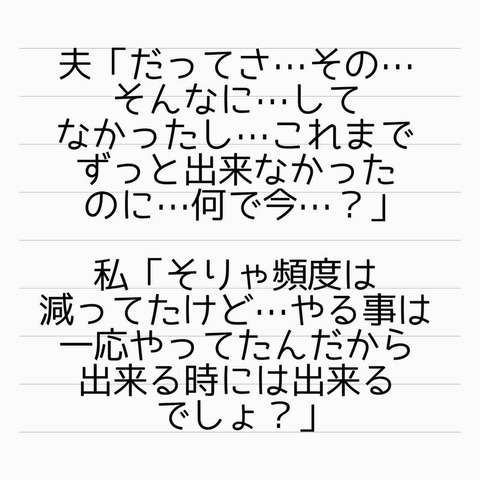 夫「だってさ…その…
そんなに…して
なかったし…これまで
ずっと出来なかった
のに…何で今…？」
私「そりゃ頻度は
減ってたけど…やる事は
一応やってたんだから
出来る時には出来る
でしょ？」